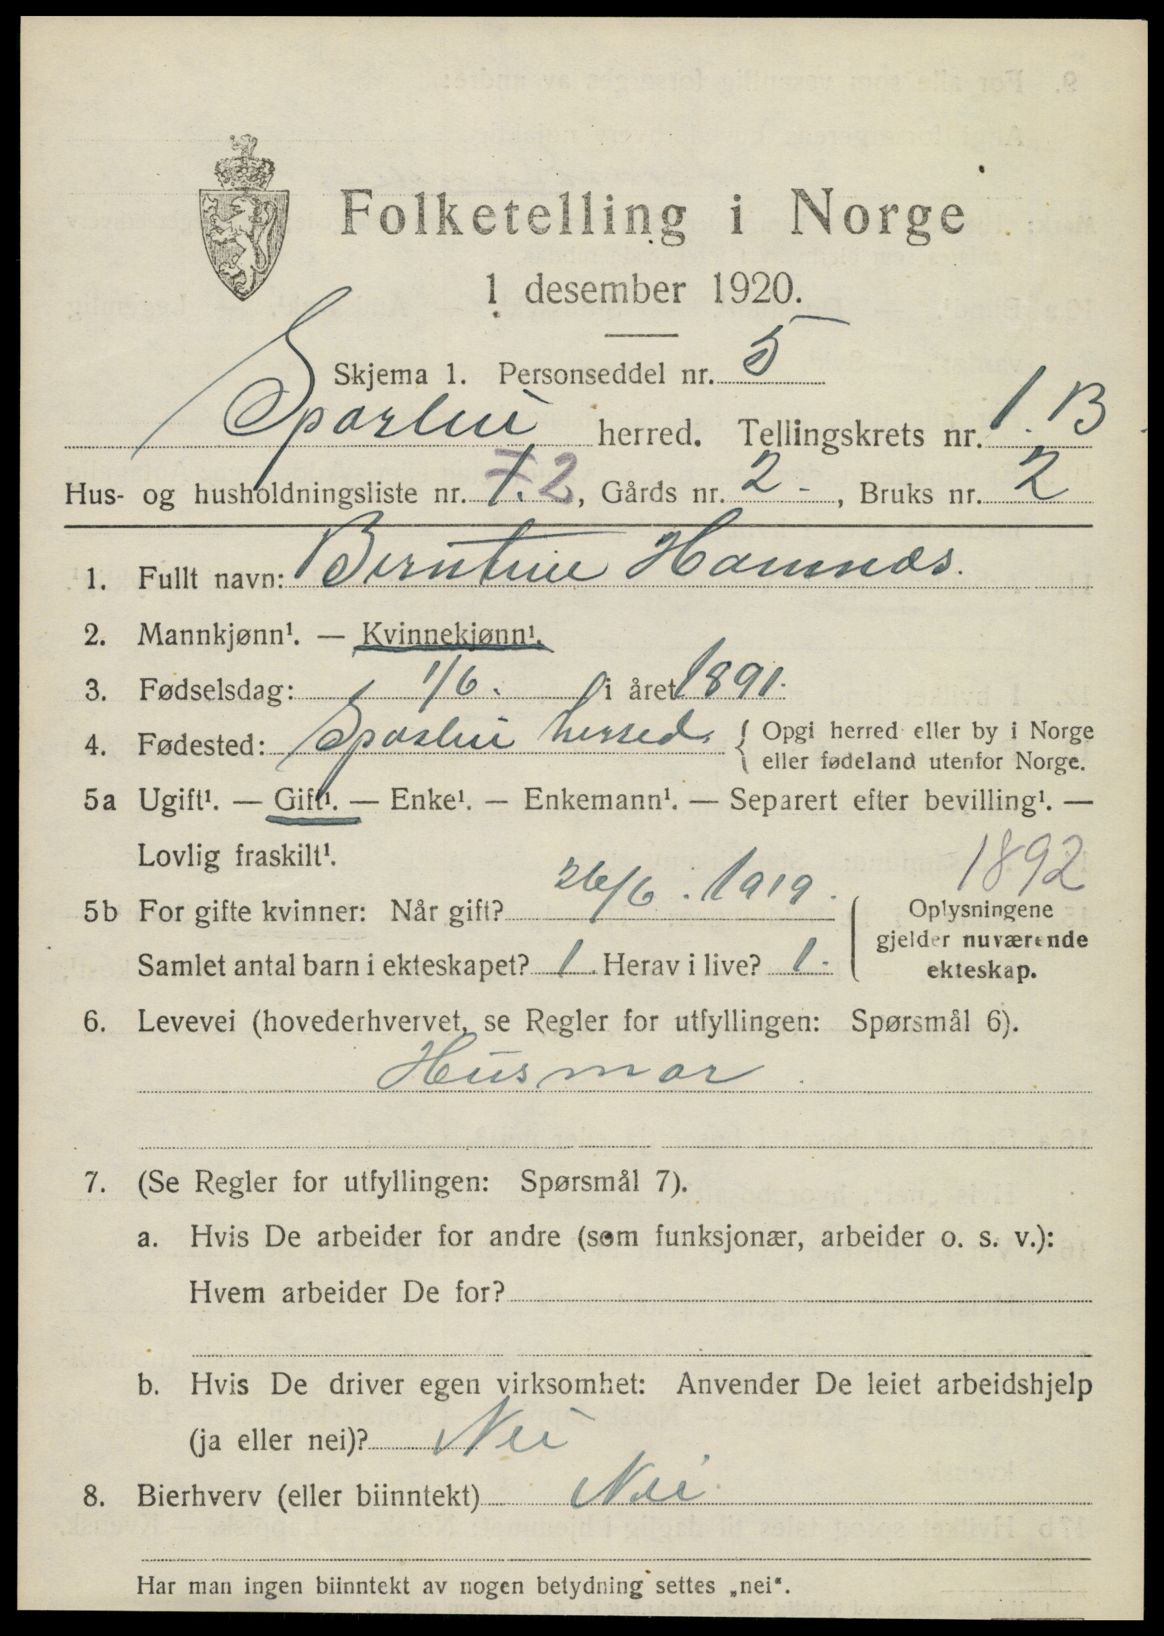 Folketelling i Norge
1 desember 1920.
Skjema 1. Personseddel nr. 5
herred. Tellingskrets nr. 1. B
Hus- og husholdningsliste nr. 1. 2, Gårds nr. 2 - , Bruks nr. 2
1. Fullt navn: Berntine Hamnæs.
2. Mannkjønn¹. — Kvinnekjønn¹.
3. Fødselsdag: 1/6. i året 1891.
4. Fødested: herred. { Opgi herred eller by i Norge
eller fødeland utenfor Norge.
5a Ugift¹. — Gift¹. — Enke¹. — Enkemann¹. — Separert efter bevilling¹. —
Lovlig fraskilt¹.
1892
5b For gifte kvinner: Når gift? 26/6. 1919. ( Oplysningene
gjelder nuværende
Samlet antal barn i ekteskapet? 1. Herav i live? 1. ekteskap.
6. Levevei (hovederhvervet, se Regler for utfyllingen: Spørsmål 6).
Husmor.
7. (Se Regler for utfyllingen: Spørsmål 7).
a. Hvis De arbeider for andre (som funksjonær, arbeider o. s. v.):
Hvem arbeider De for?
b. Hvis De driver egen virksomhet: Anvender De leiet arbeidshjelp
(ja eller nei)? Nei
8. Bierhverv (eller biinntekt) Nei
Har man ingen biinntekt av nogen betydning settes „nei".